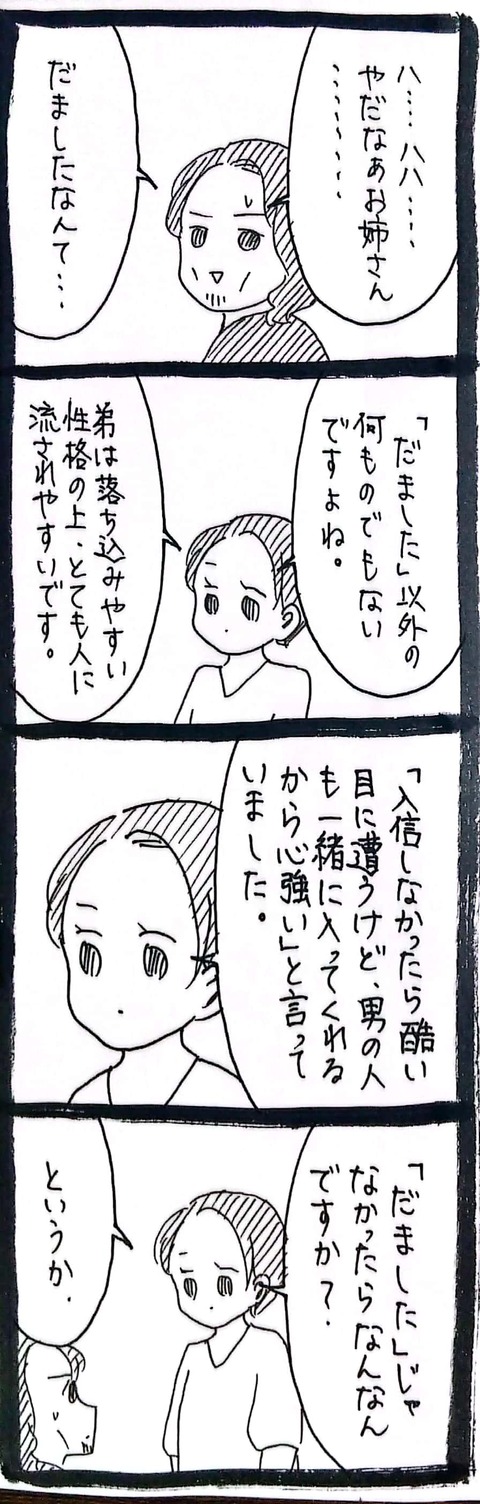 ハ……ハハ……
やだなぁお姉さん
………………
だましたなんて…
「だました」以外の
何ものでもない
ですよね。
弟は落ち込みやすい
性格の上、とても人に
流されやすいです。
「入信しなかったら酷い
目に遭うけど、男の人
も一緒に入ってくれる
から心強い」と言って
いました。
「だました」じゃ
なかったらなんなん
ですか？
というか、